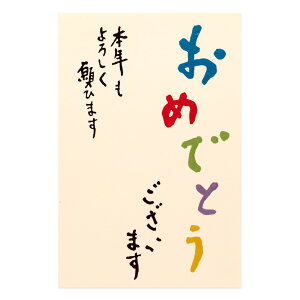 おめでとう
ござい
ます
本年も
よろしく
願ひます